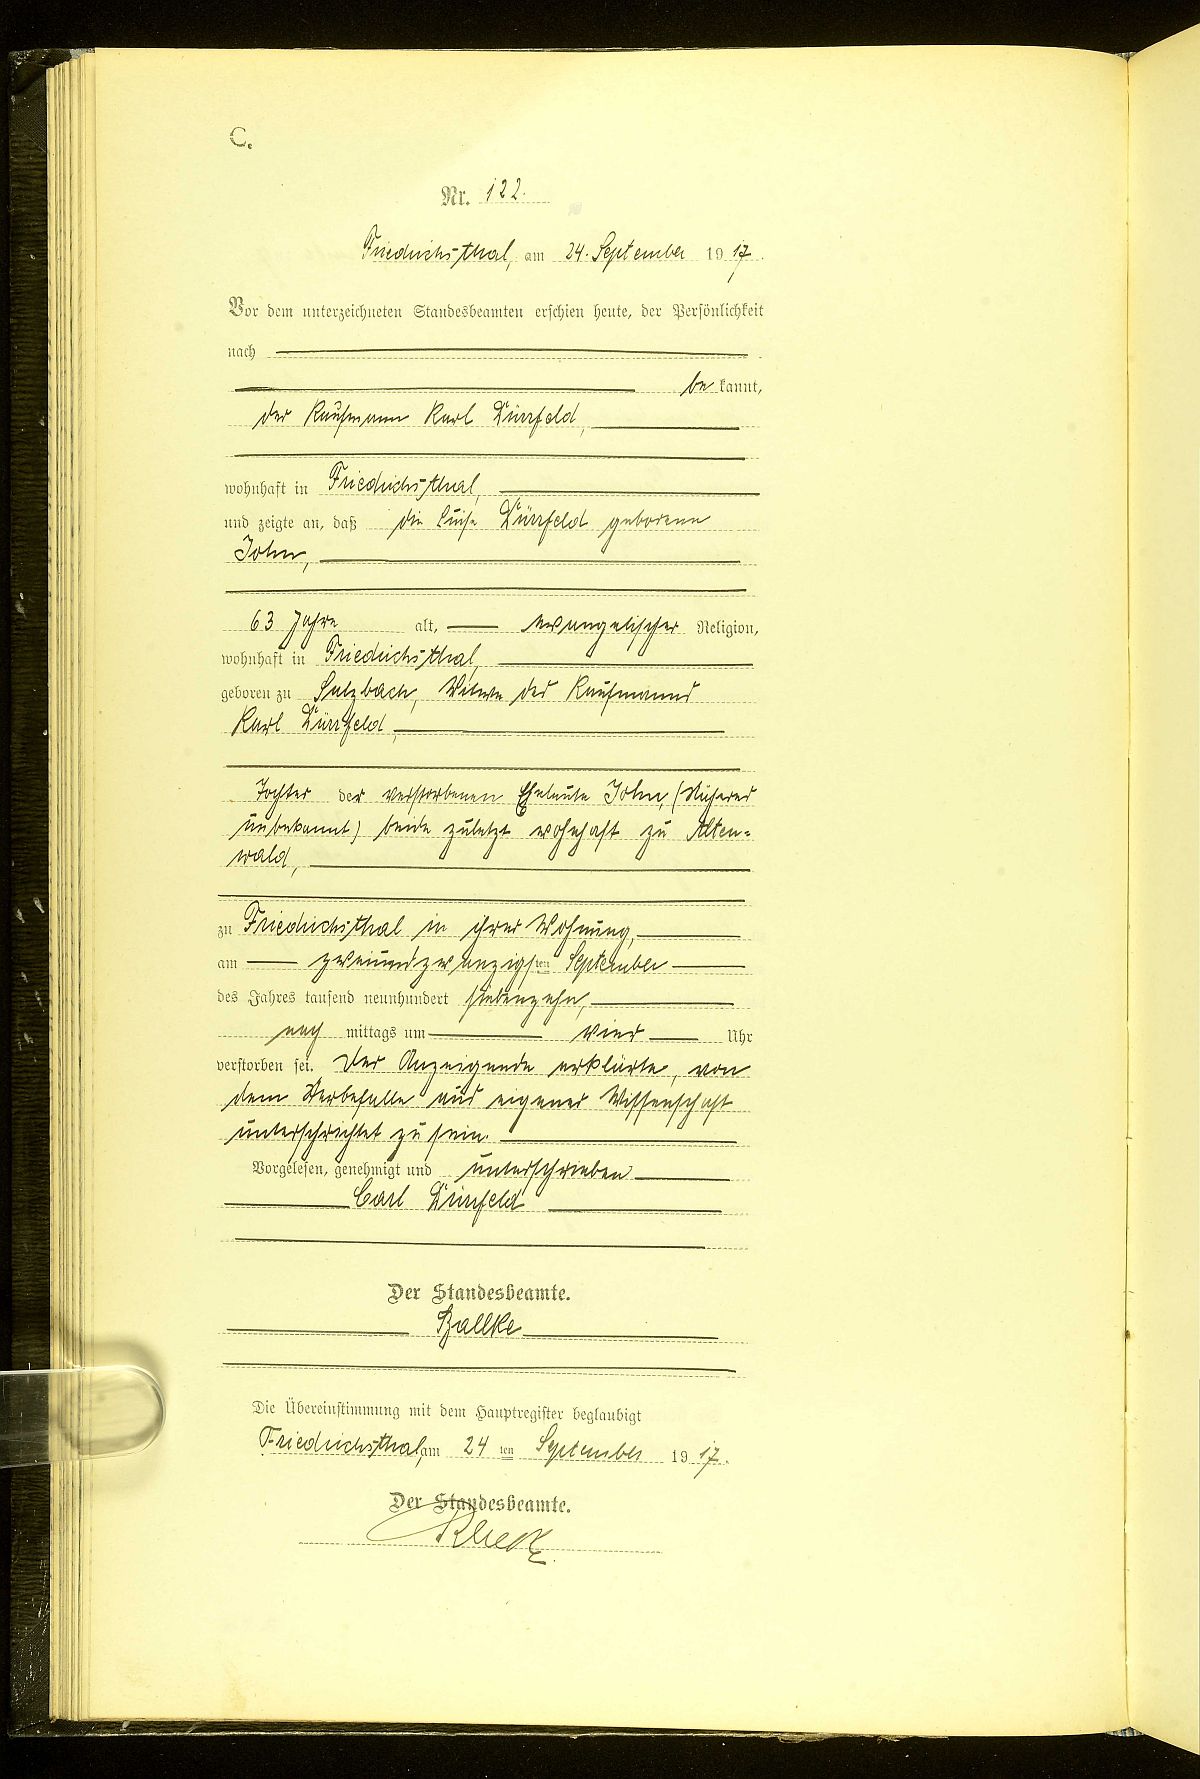 C.
Nr. 122.
Friedrichsthal, am 24. September 1917.
Vor dem unterzeichneten Standesbeamten erschien heute, der Persönlichkeit
nach
be kannt,
der Kaufmann Karl Dürrfeld,
wohnhaft in Friedrichsthal,
und zeigte an, daß die Luise Dürrfeld geborene
John,
63 Jahre alt, evangelischer Religion,
wohnhaft in Friedrichsthal,
geboren zu Sulzbach, Witwe des Kaufmanns
Karl Dürrfeld,
Tochter der verstorbenen Eheleute John, (Näheres
unbekannt) beide zuletzt wohnhaft zu Alten-
wald,
zu Friedrichsthal in ihrer Wohnung,
am zweiundzwanzigsten September
des Jahres tausend neunhundert siebenzehn,
nach mittags um vier Uhr
verstorben sei. Der Anzeigende erklärte, von
dem Sterbefalle aus eigener Wissenschaft
unterrichtet zu sein.
Vorgelesen, genehmigt und unterschrieben
Carl Dürrfeld
Der Standesbeamte.
Die Übereinstimmung mit dem Hauptregister beglaubigt
Friedrichsthal, am 24 ten September 1917.
Der Standesbeamte.